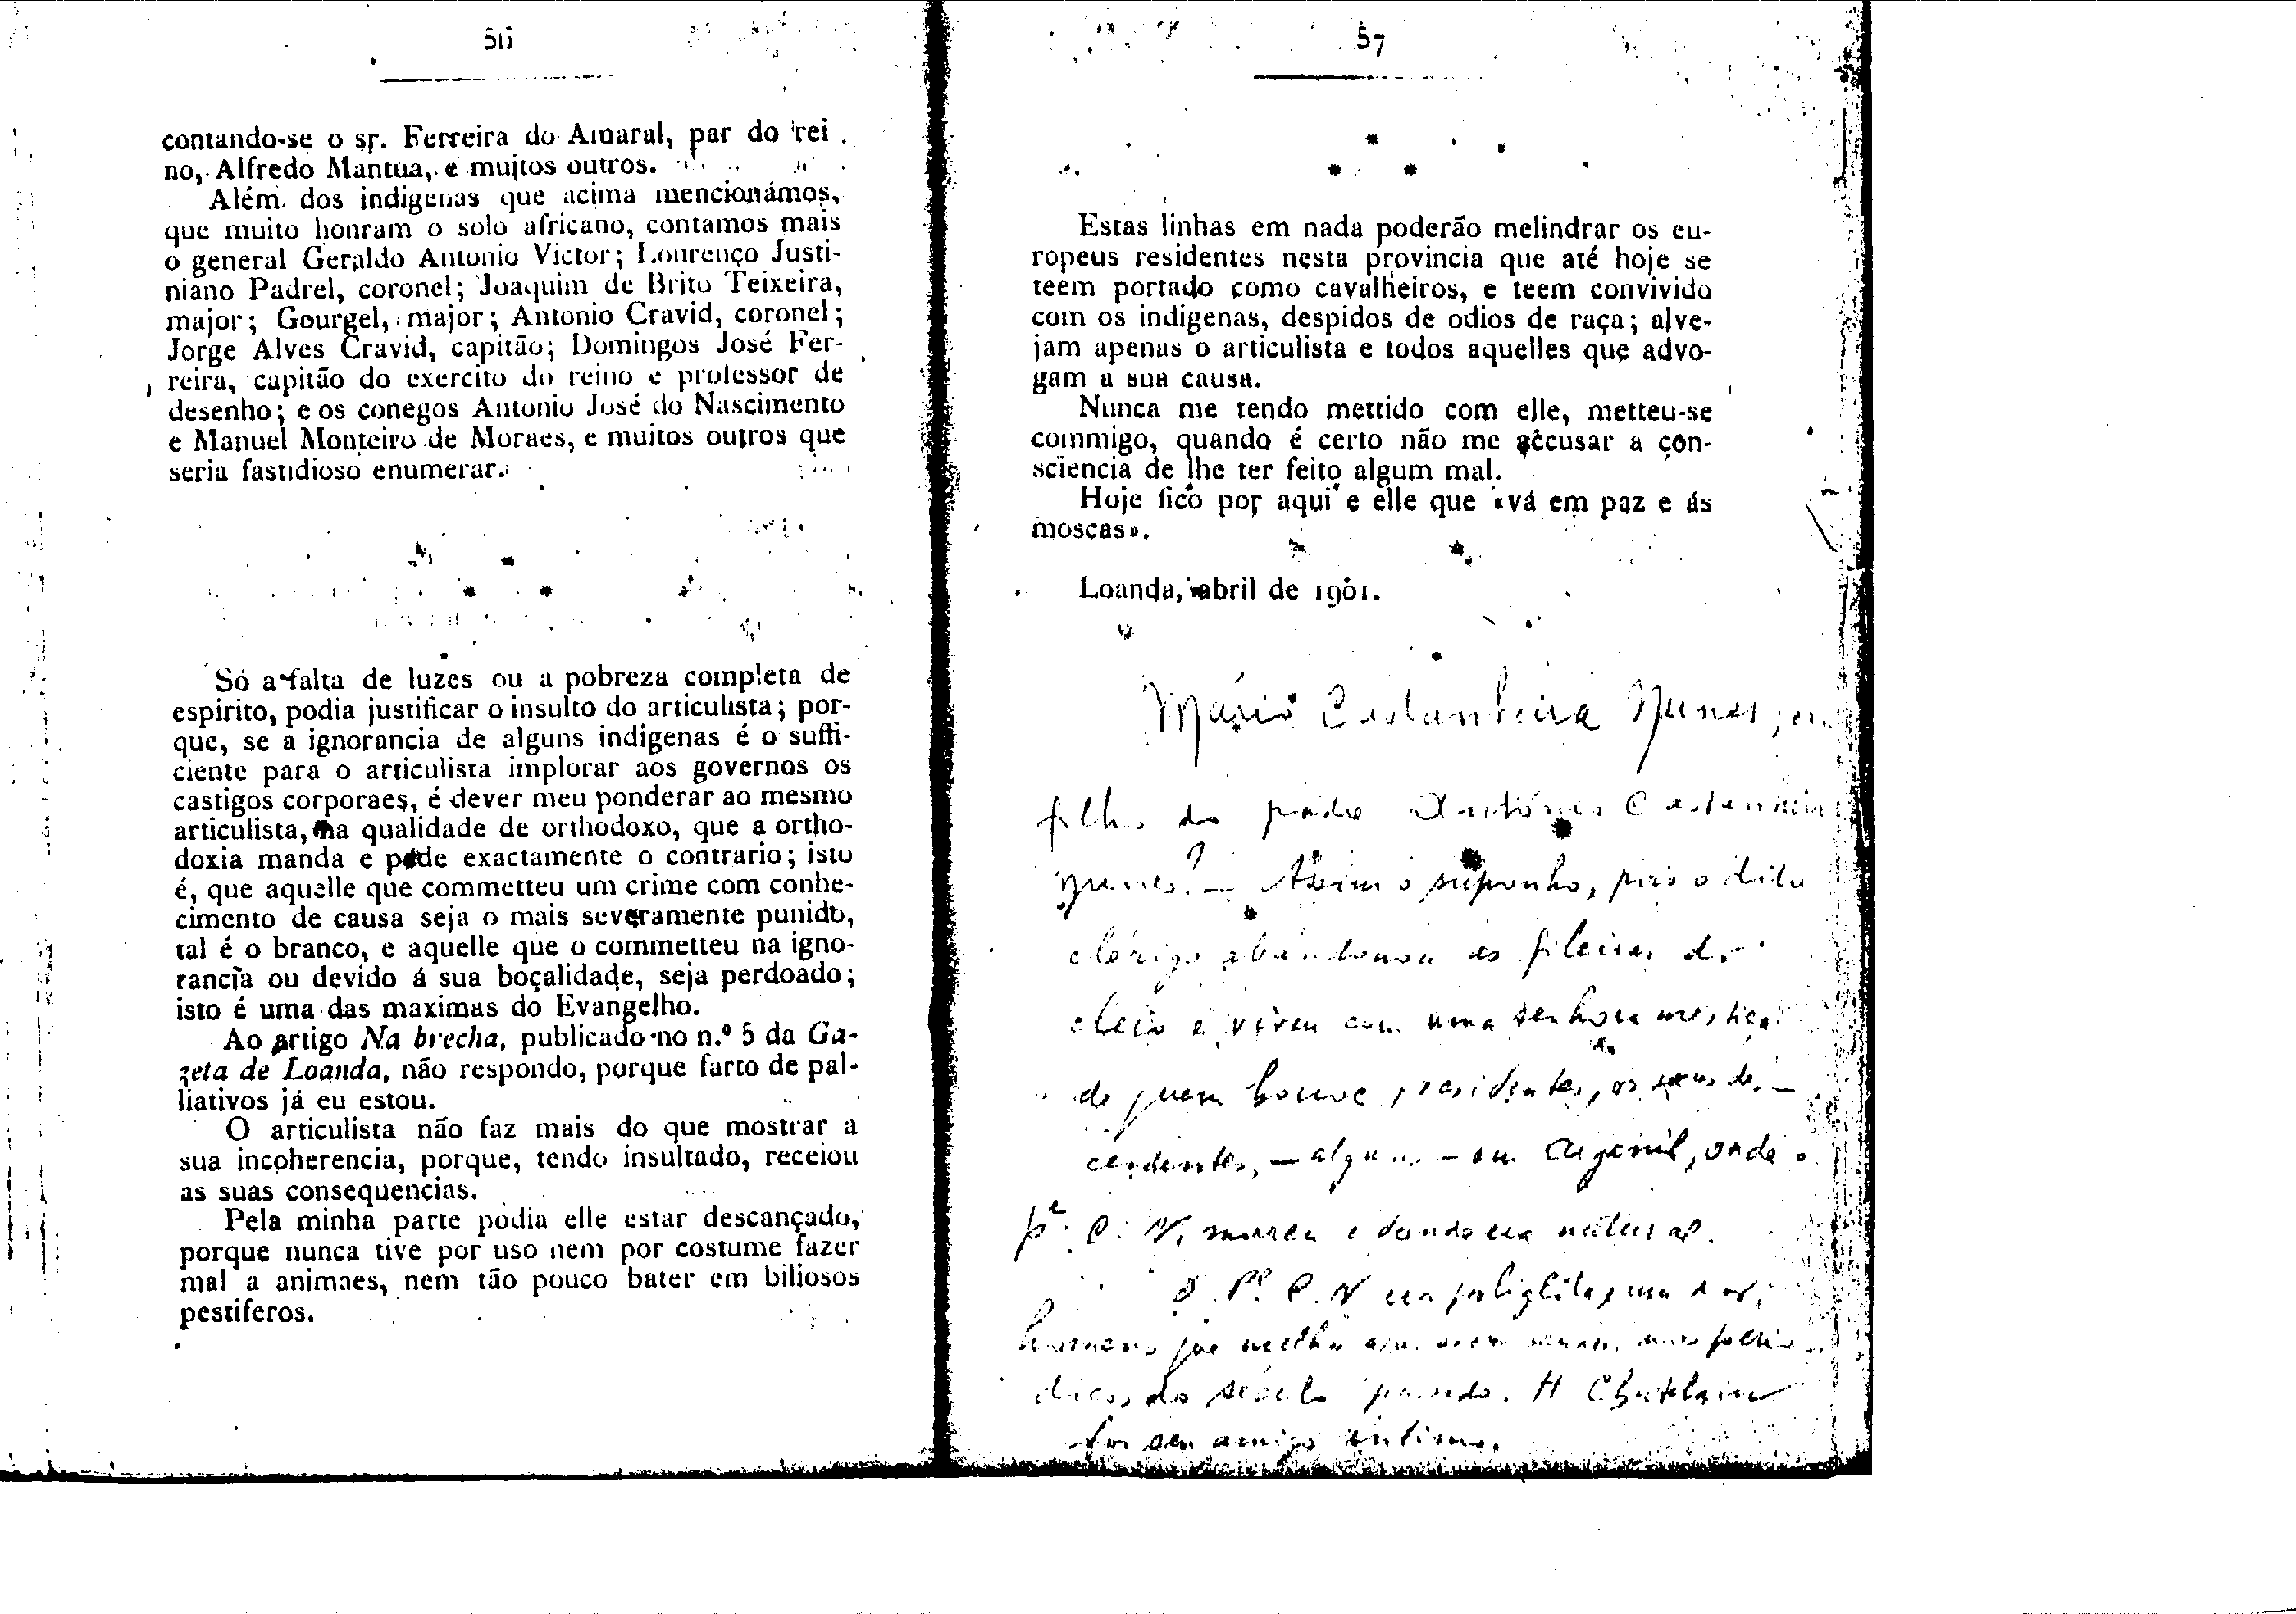 56
contando-se o sr. Ferreira do Amaral, par do rei
no, Alfredo Mantua, e muitos outros.
Além dos indigenas que acima mencionámos,
que muito honram o solo africano, contamos mais
o general Geraldo Antonio Victor; Lourenço Justi-
niano Padrel, coronel; Joaquim de Brito Teixeira,
major; Gourgel, major; Antonio Cravid, coronel;
Jorge Alves Cravid, capitão; Domingos José Fer-
reira, capitão do exercito do reino e professor de
desenho; e os conegos Antonio José do Nascimento
e Manuel Monteiro de Moraes, e muitos outros que
seria fastidioso enumerar.
Só a falta de luzes ou a pobreza completa de
espirito, podia justificar o insulto do articulista; por-
que, se a ignorancia de alguns indigenas é o suffi-
ciente para o articulista implorar aos governos os
castigos corporaes, é dever meu ponderar ao mesmo
articulista, na qualidade de orthodoxo, que a ortho-
doxia manda e pede exactamente o contrario; isto
é, que aquelle que commetteu um crime com conhe-
cimento de causa seja o mais severamente punido,
tal é o branco, e aquelle que o commetteu na igno-
rancia ou devido á sua boçalidade, seja perdoado;
isto é uma das maximas do Evangelho.
Ao artigo Na brecha, publicado no n.º 5 da Ga-
zeta de Loanda, não respondo, porque farto de pal-
liativos já eu estou.
O articulista não faz mais do que mostrar a
sua incoherencia, porque, tendo insultado, receiou
as suas consequencias.
Pela minha parte podia elle estar descançado,
porque nunca tive por uso nem por costume fazer
mal a animaes, nem tão pouco bater em biliosos
pestiferos.
57
*
* *
Estas linhas em nada poderão melindrar os eu-
ropeus residentes nesta provincia que até hoje se
teem portado como cavalheiros, e teem convivido
com os indigenas, despidos de odios de raça; alve-
jam apenas o articulista e todos aquelles que advo-
gam a sua causa.
Nunca me tendo mettido com elle, metteu-se
commigo, quando é certo não me accusar a con-
sciencia de lhe ter feito algum mal.
Hoje fico por aqui e elle que «vá em paz e ás
moscas».
Loanda, abril de 1901.
Mário Castanheira Nunes,
filho do padre António Castanheira
Nunes? — Assim o suponho, pois o dito
clérigo abandonou as fileiras do
clero e viveu com uma senhora mestiça
de quem houve os seus des-
cendentes, — alguns — em Arganil, onde o
Pe. C. N. morreu e donde era natural.
O Pe. C. N. era poliglota, um dos
homens que melhor
do século passado. H Chatelain
foi seu amigo íntimo.